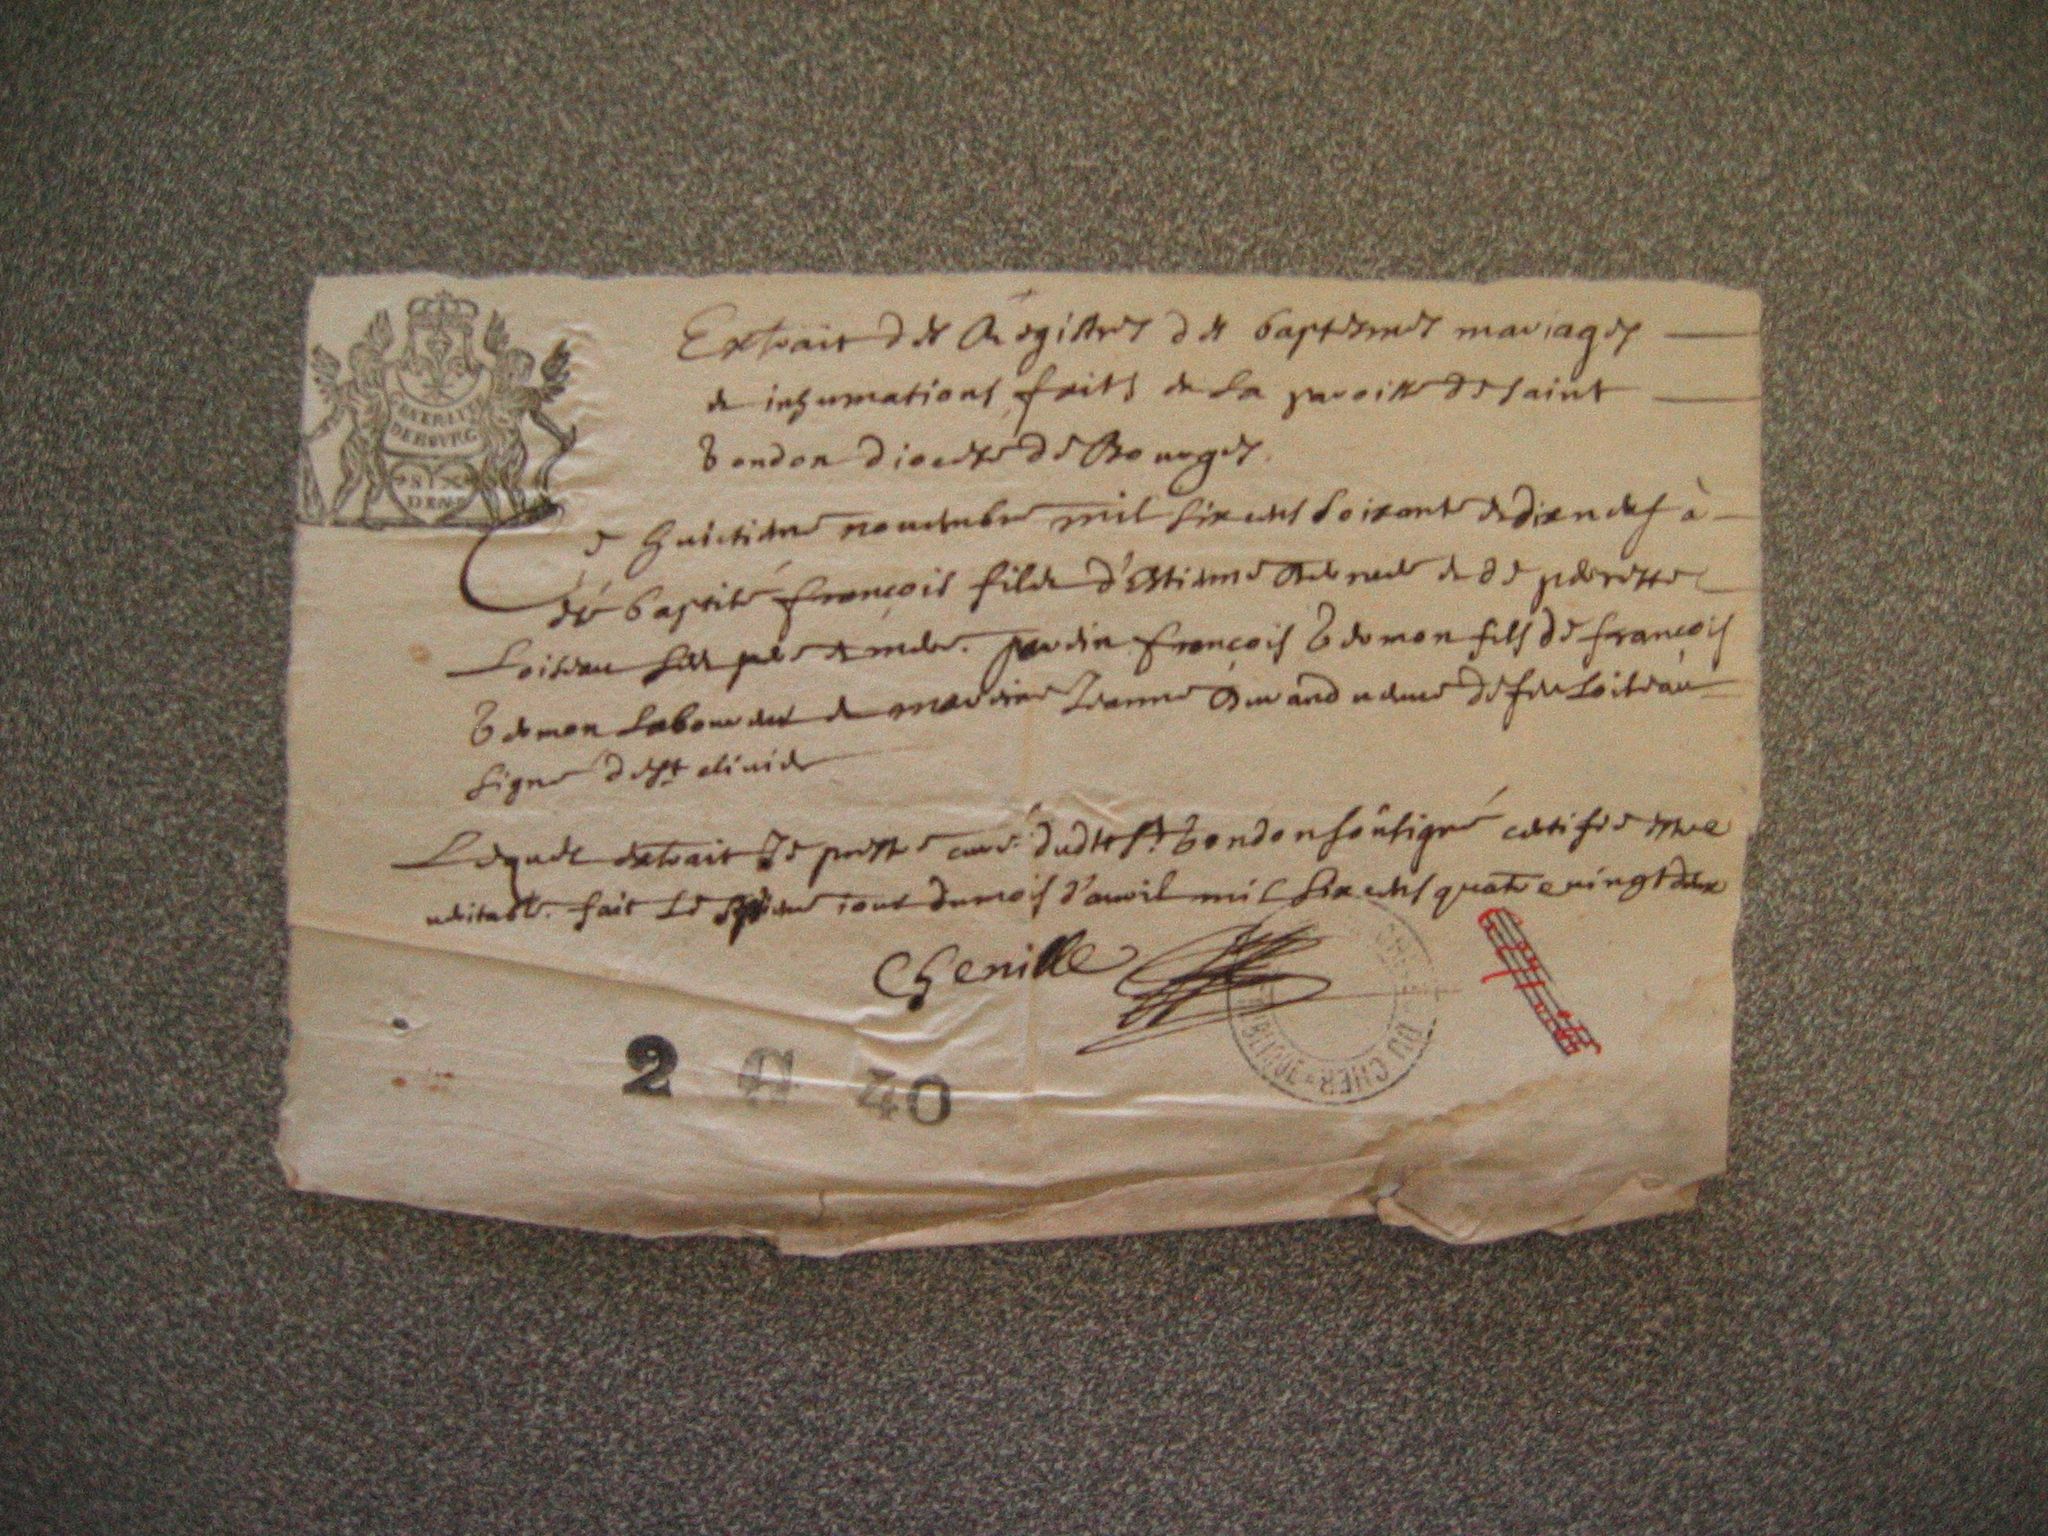 GNERALITE
DE BOVRG
SIX
DEN
Extrait des Registres des baptesmes mariages
& inhumations faits de la paroisse de saint
bondon diocese de Bourges.
Ce huictieme nouembre mil six cens soixante & dix neuf à
été baptisé françois fils d'Estienne & de perrette
Loiseau ses pere & mere. parein françois bernon fils de françois
bernon laboureur & mareine Jeanne Durand veuve de feu Loiseau
signé
Lequel extrait Je prestre curé dudit St. bondon soûsigné certifie estre
veritable. fait le jour du mois d'auril mil six cens quatre vingt deux
Chenille
2 40
DU CHER